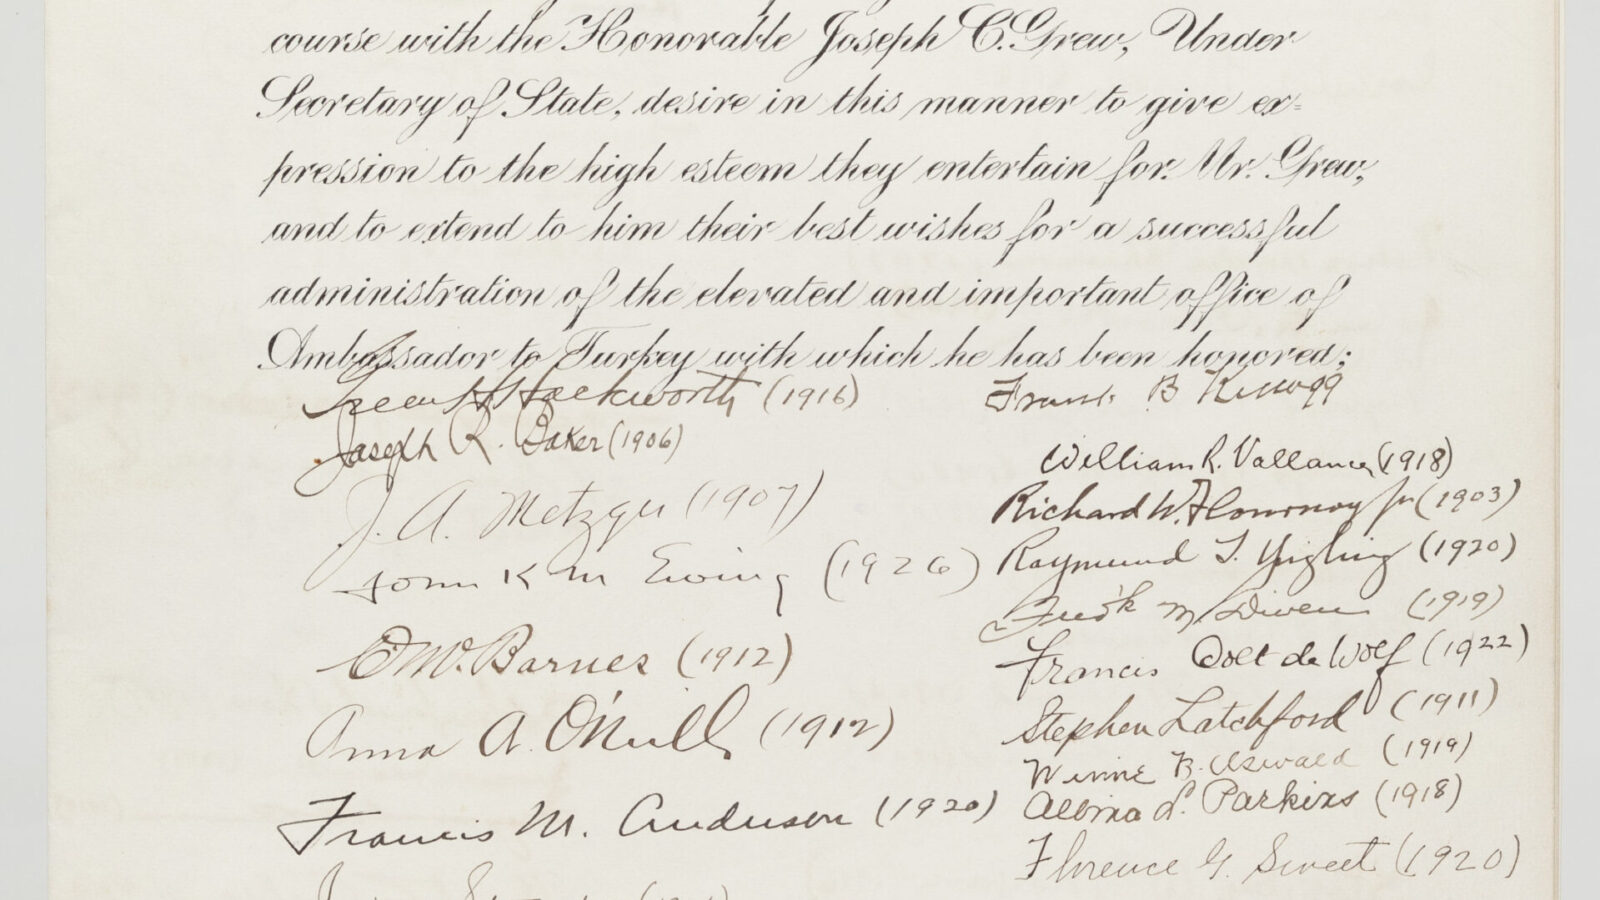 course with the Honorable Joseph C. Grew, Under
Secretary of State, desire in this manner to give ex=
pression to the high esteem they entertain for Mr. Grew,
and to extend to him their best wishes for a successful
administration of the elevated and important office of
Ambassador to Turkey with which he has been honored:
Green H Hackworth (1916)
Joseph R. Baker (1906)
J. A. Metzger (1907)
John K M Ewing (1926)
Mc. Barnes (1912)
Anna A. O'Neill (1912)
Francis M. Anderson (1920)
Frank B Kellogg
William R. Vallance (1918)
Richard W. Flournoy Jr (1903)
Raymund T. Yingling (1920)
Fred'k M. Diven (1919)
Francis Colt de Wolf (1922)
Stephen Latchford (1911)
Winne B. Oswald (1919)
Albina L. Parkins (1918)
Florence G. Sweet (1920)